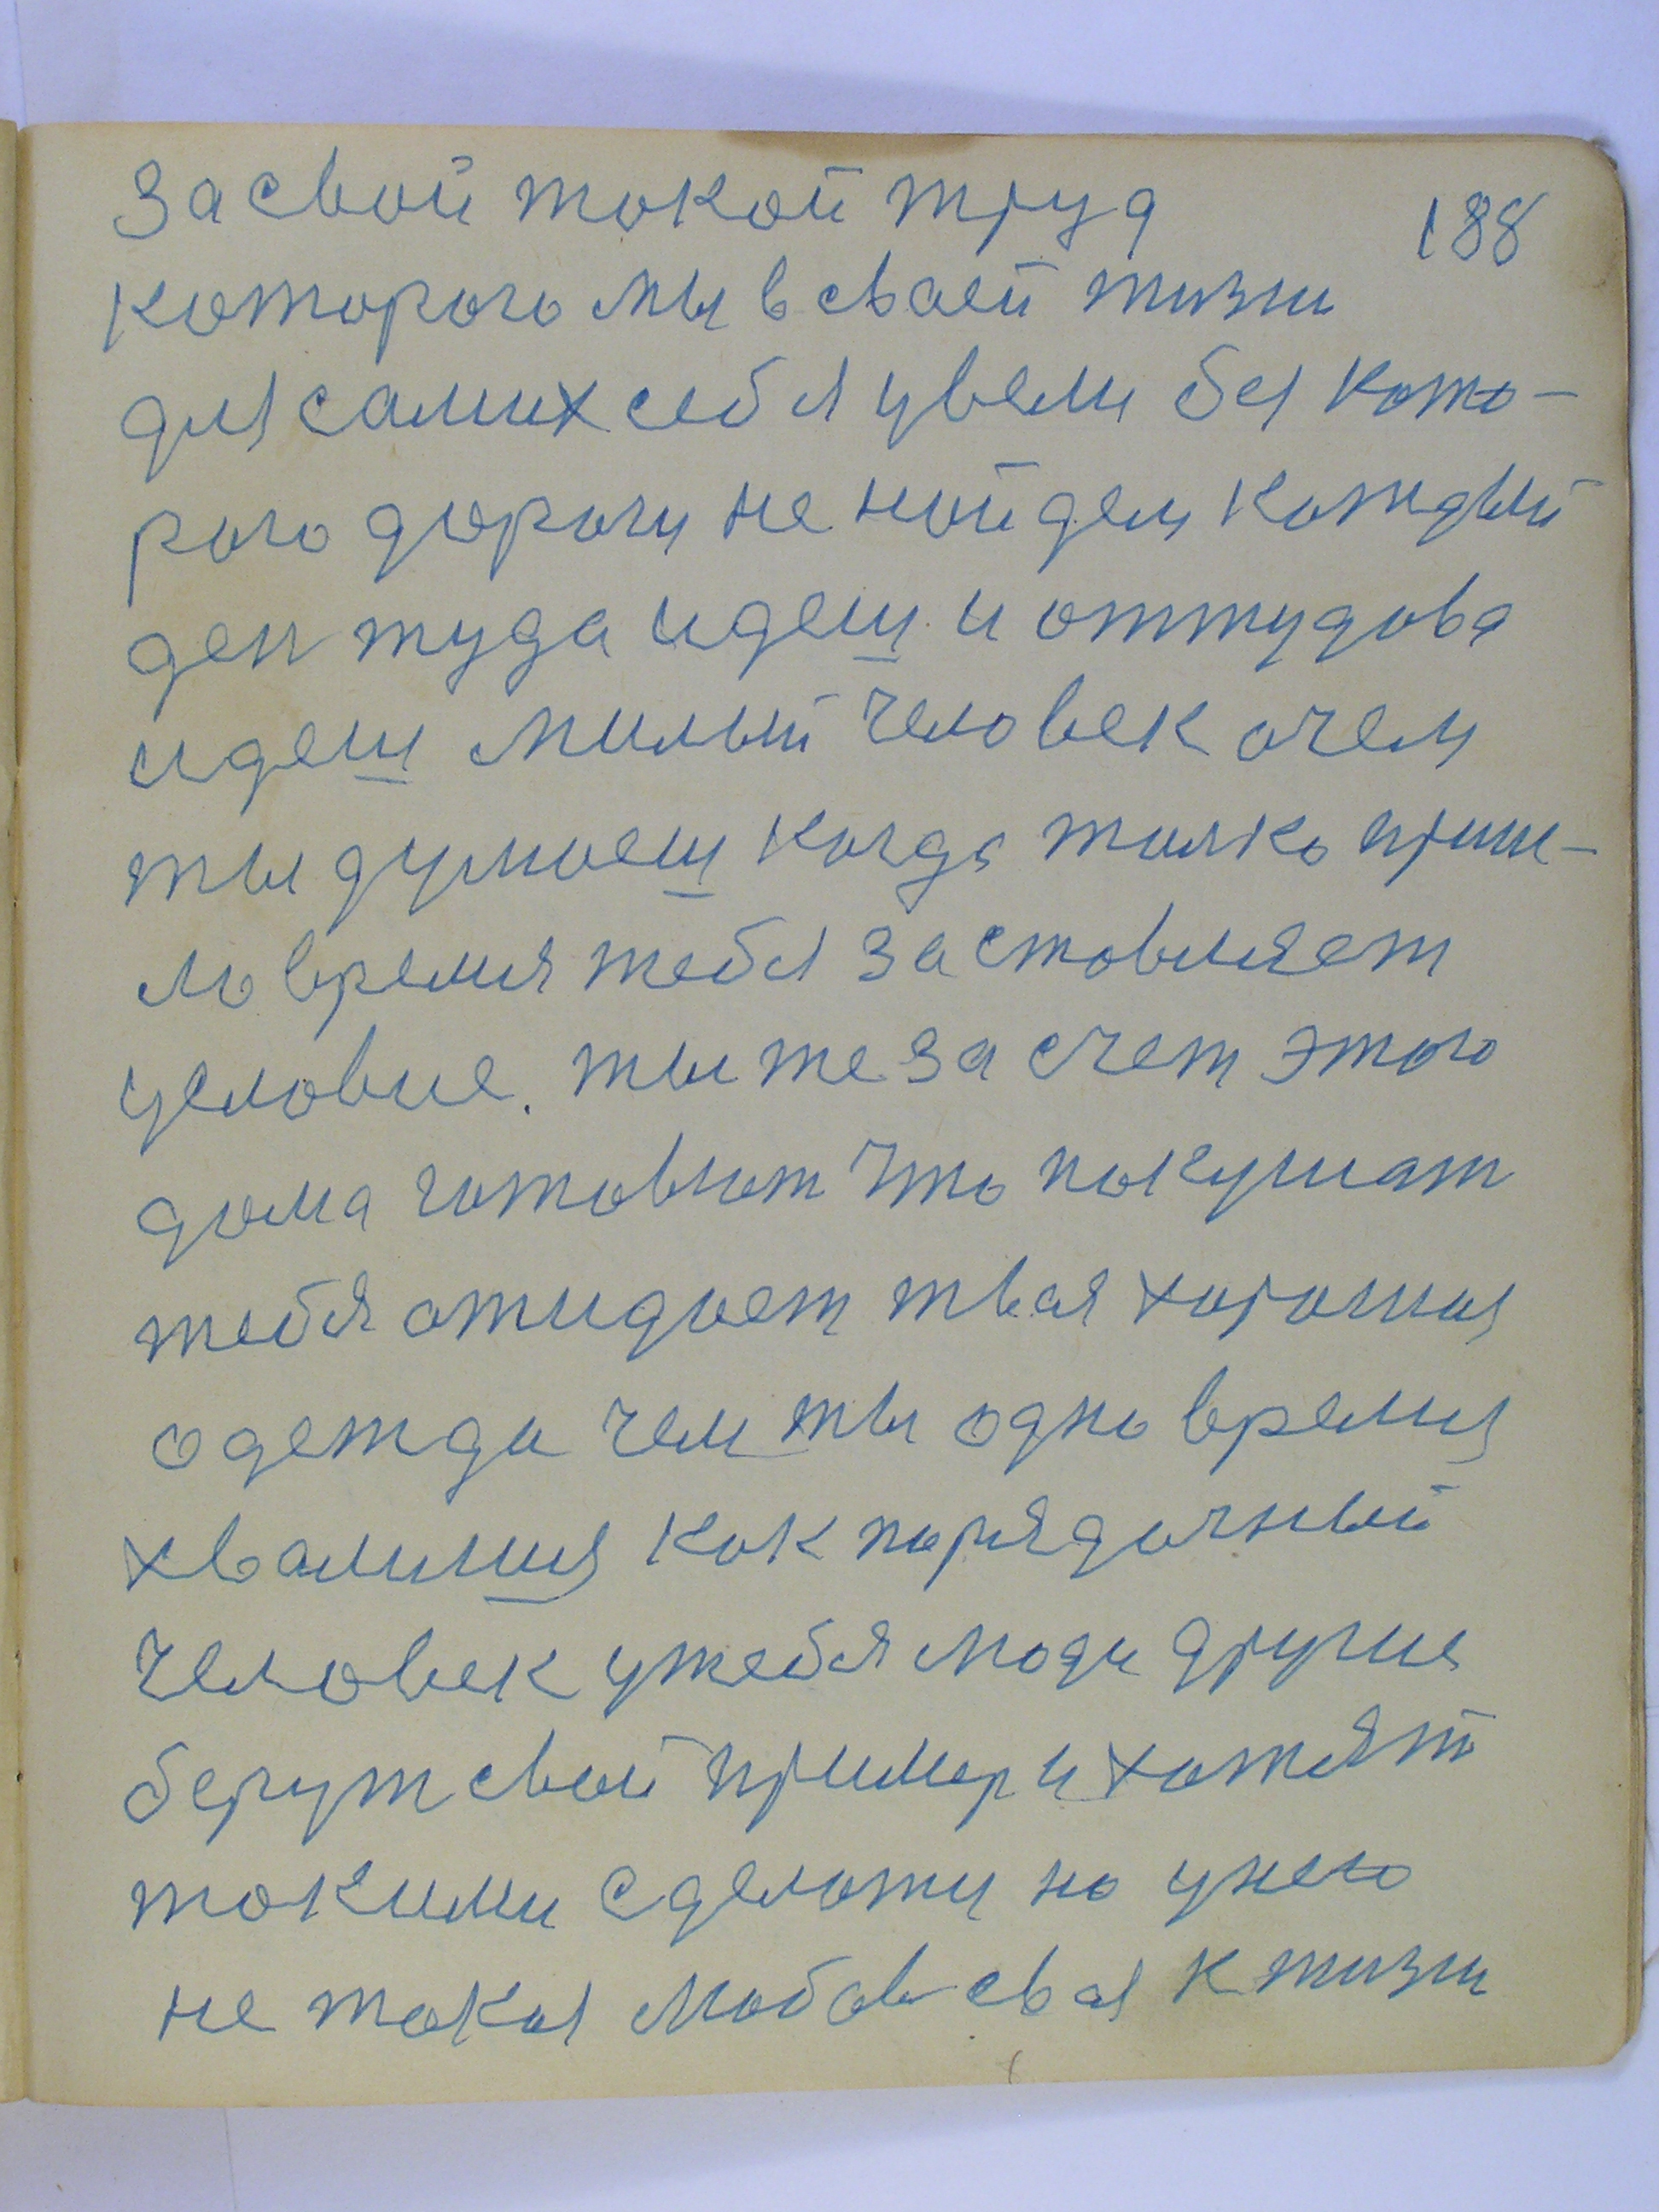 За свой такой труд
188
которого мы в своей жизни
для самих себя увели без кото-
рого дороги не найдем каждый
ден туда идеш и оттудова
идеш милый человек о чем
ты думаеш когда толко приш-
ло время тебя заставляет
условие. ты же за счет этого
дома готовют что покушат
тебя ожидает твоя хорошая
одежда чем ты одно время
хвалишся как порядочный
человек у тебя люди другие
берут свой пример и хотят
такими сделаться но у него
не такая любов своя к жизни